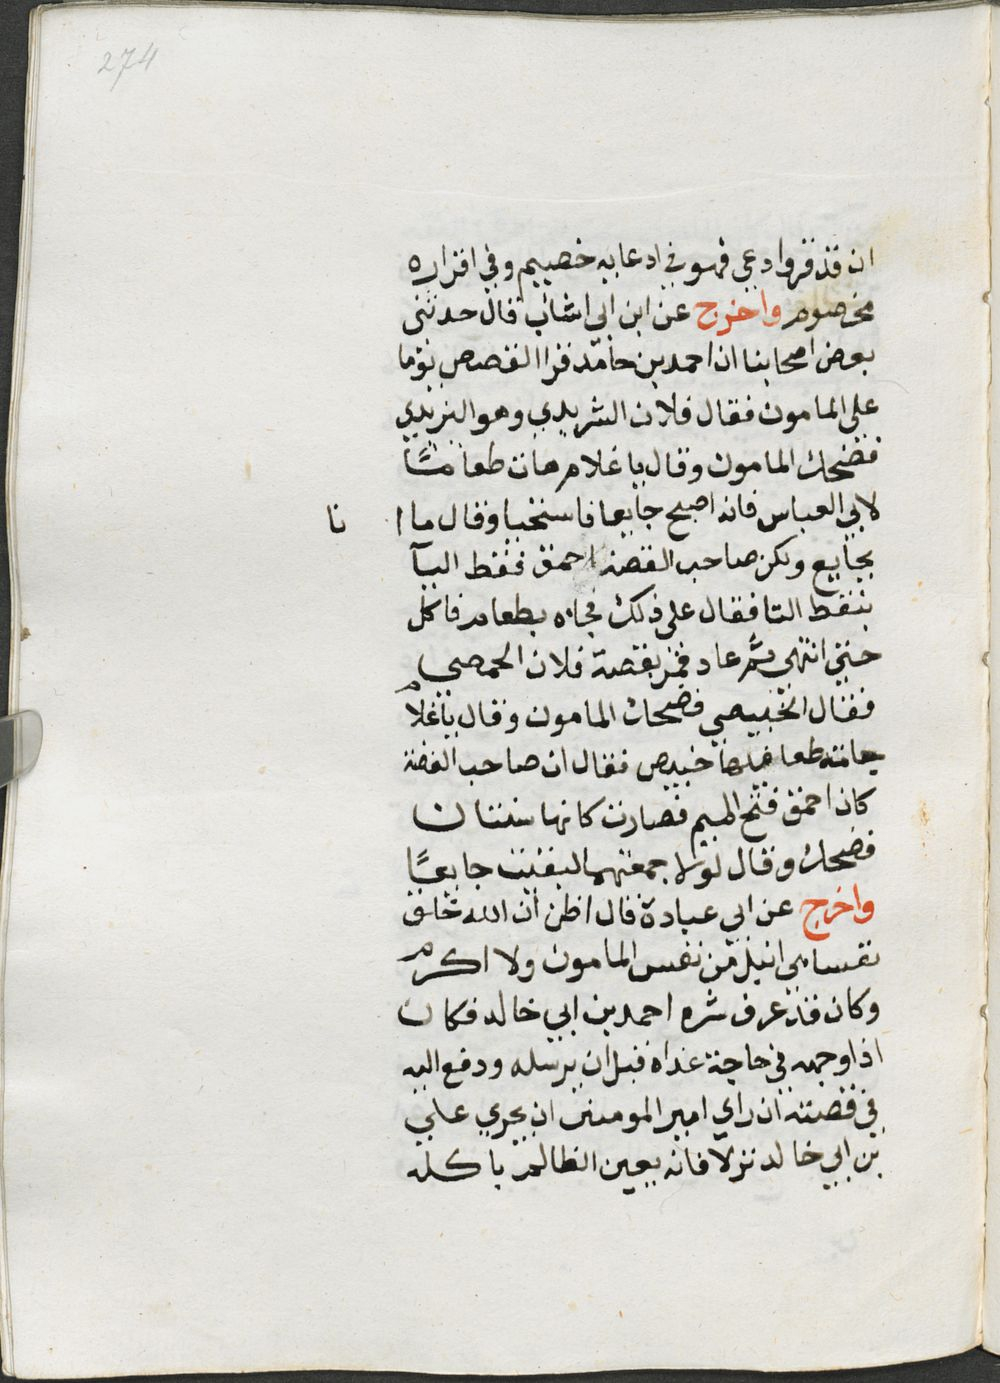 274
ان قد قر وادعي فهو في ادعايه خصيم وفي اقراره
مخصوم واخرج عن ابن ابي اشاب قال حدثني
بعض اصحابنا ان احمد بن حامد قرا القصص يوما
على المامون فقال فلان الثريدي وهو اليزيدي
فضحك المامون وقال يا غلام هات طعاما
لابي العباس فانه اصبح جايعا فاستحيا وقال ما انا
بجايع ولكن صاحب القصة احمق فنقط اليا
بنقط التا فقال على ذلك فجاه بطعام فاكل
حتى انتهى ثم عاد فمر بقصة فلان الحمصي
فقال الخبيصي فضحك المامون وقال يا غلام
طعا خبيص فقال ان صاحب القصة
كان احمق فتح الميم فصارت كانها سنتان
فضحك وقال لولا حمقهما لبقيت جايعًا
واخرج عن ابي عبادة قال اظن ان الله خلق
نفسا هي انبل من نفس المامون ولا اكرم
وكان قد عرف شره احمد بن ابي خالد فكان
اذا وجهه في حاجة غداه قبل ان يرسله ودفع اليه
في قصته ان راي امير المومنين ان يجري علي
بن ابي خالد نزلا فانه يعين الظالم باكله